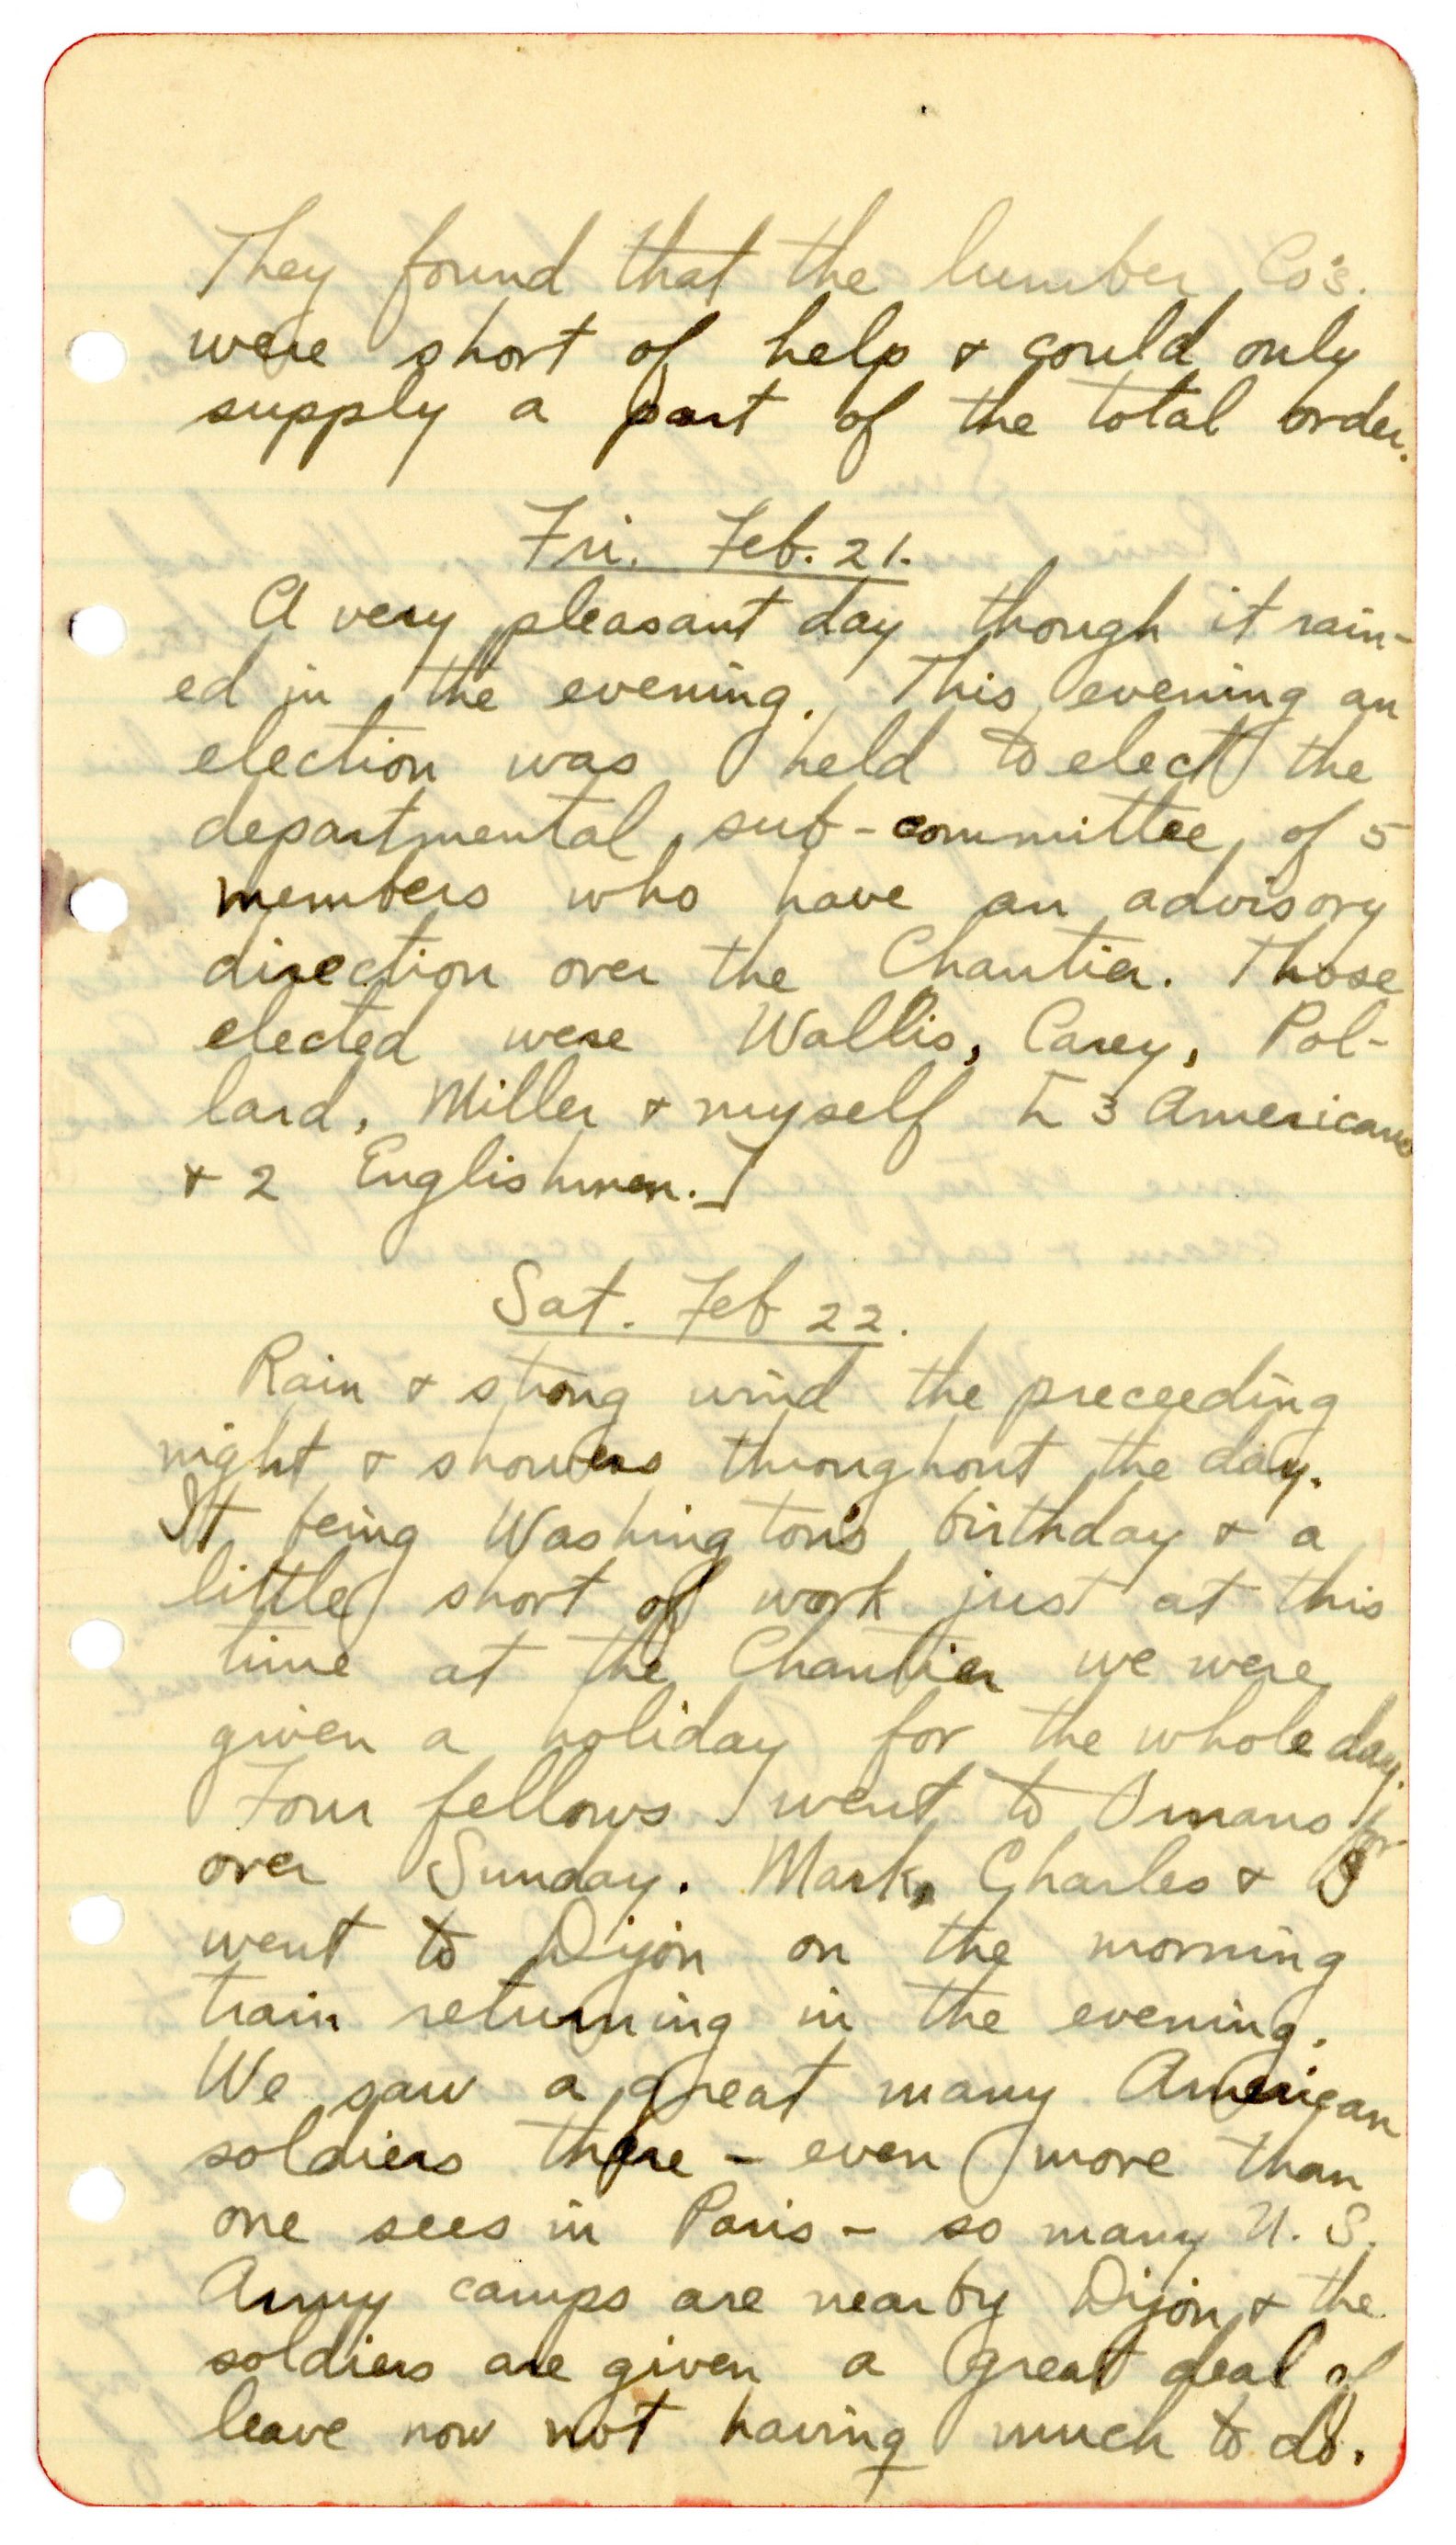 They found that the lumber Co's.
were short of help & could only
supply a part of the total order.
Fri. Feb. 21.
A very pleasant day though it rain-
ed in the evening. This evening an
election was held to elect the
departmental sub-committee of 5
members who have an advisory
direction over the Chantier. Those
elected were Wallis, Carey, Pol-
lard, Miller & myself [3 Americans
& 2 Englishmen.]
Sat. Feb 22.
Rain & strong wind the preceeding
night & showers throughout the day.
It being Washington's birthday & a
little short of work just at this
time at the Chantier we were
given a holiday for the whole day.
Four fellows went to Ornans for
over Sunday. Mark, Charles & I
went to Dijon on the morning
train returning in the evening.
We saw a great many American
soldiers there - even more than
one sees in Paris - so many U. S.
Army camps are nearby Dijon & the
soldiers are given a great deal of
leave now not having much to do.